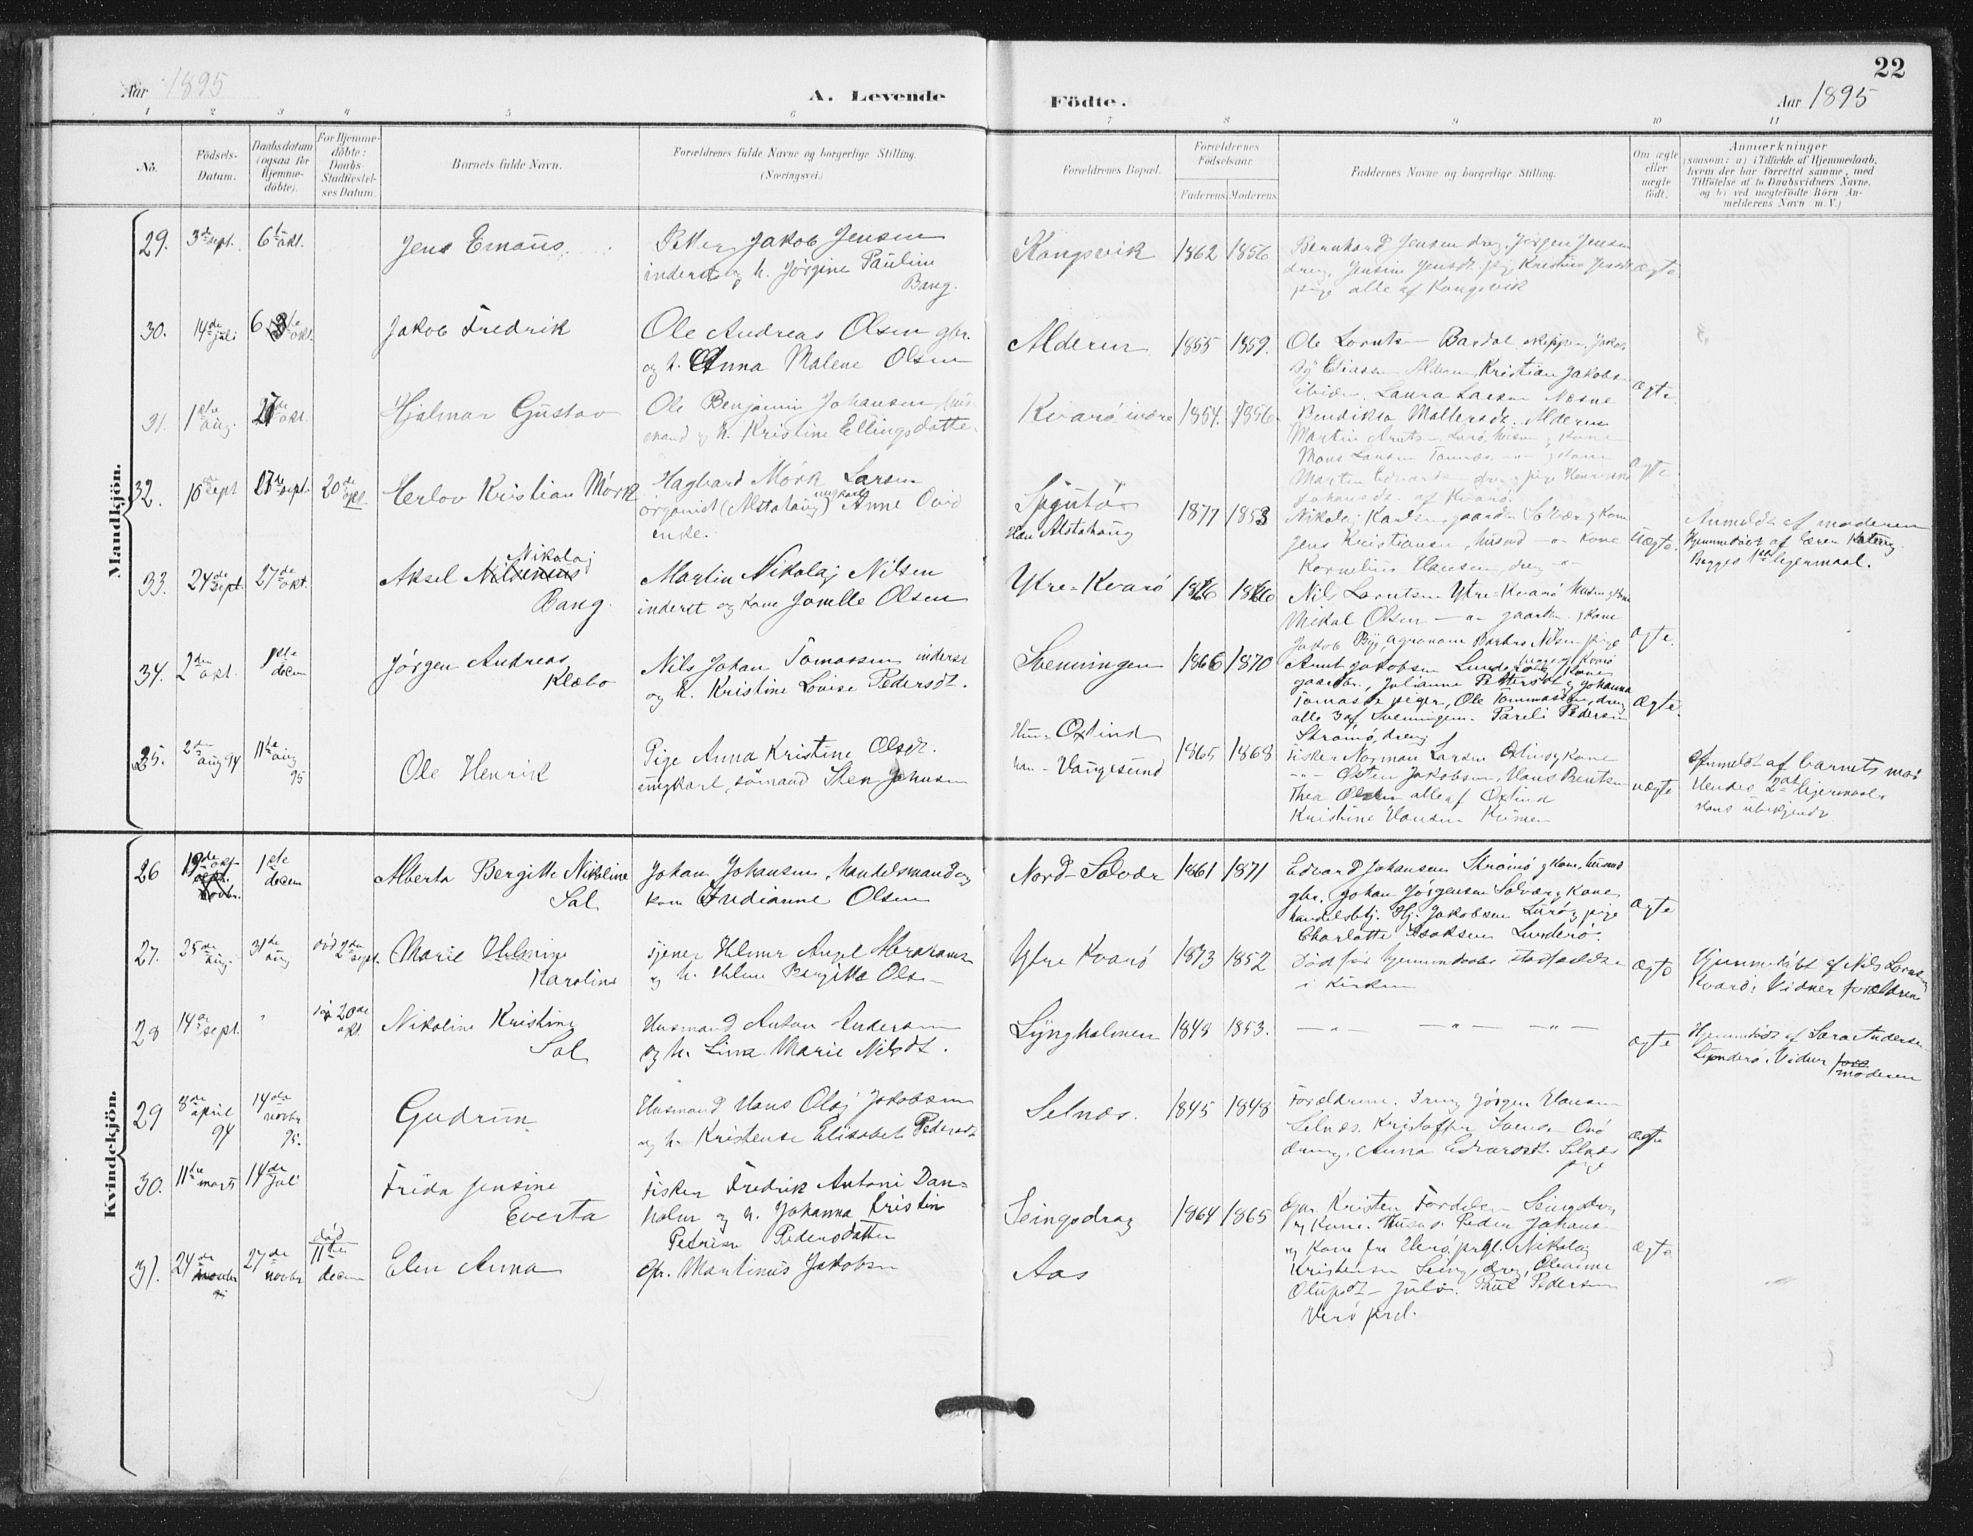 22
Aar 1895
A. Levende
Födte.
Aar 1895
1 2 3 4 5 6 7 8 9 10 11
No.
Födsels-Datum.
Daabsdatum (ogsaa for Hjemme-döbte).
For Hjemme-döbte: Daabs-Stadfæstel-ses Datum.
Barnets fulde Navn.
Forældrenes fulde Navne og borgerlige Stilling.
(Næringsvei.)
Forældrenes Bopæl.
Forældrenes Födselsaar.
Faderens. Moderens.
Faddernes Navne og borgerlige Stilling.
Om ægte eller uægte födt.
Anmærkninger
(saasom: a) i Tilfælde af Hjemmedaab,
hvem der har forrettet samme, med
Tilföielse af to Daabsvidners Navne,
og b) ved uægtefödte Börn An-
melderens Navn m. V.)
Mandkjön.
29. 3de sept. 6te okt. Jens Emaus.
Peter Jakob Jensen
inderst og h. Jørgine Pauline
Bang.
Kongsvik 1862 1856
Bernhard Jensen dreg, Jørgen Jensen
dreng, Jensine Jensdt. pige, Kristine Jensdt
pige alle af Kongsvik
ægte
30. 14de juli 6te okt. Jakob Fredrik
Ole Andreas Olsen gbr.
og h. Anna Malene Olsen
Alderen 1855 1859.
Ole Lornts Bardal skipper, Jakob
Elias Alderen, Kristian Jakobs
Laura Larsen Nesne
Bendikta Mattersdt. Alderen
ægte
31. 1ste aug. 27de okt. Hjalmar Gustav
Ole Benjamin Johansen, hus
mand og h. Kristine Ellingsdatter.
Kvarø indre 1854. 1856.
Martin Arnts Lurø, husm. og Kone
Mons Larsen Tonnes
Johansdt. af Kvarø.
ægte
32. 16de sept 27de sept. 20de okt. Herlov Kristian Mørk
Hagbard Mørk Larsen
organist (Alstahaug) ungkarl Anne Ovid
enke.
Han Alstahaug
1877 1853
Nikolaj Karlsen, gaardbr. Solvær og Kone
Jens Kristiansen, husmd - " - Kone
Kornelius Hansen, dreng - " -
Uægte.
Anmeldt af moderen
Hjemmedøbt af
Begges 1ste lejermaal.
33. 24de sept. 27de okt. Aksel Nikolaj
Bang.
Martin Nikolaj Nilsen
inderst og Kone Jomille Olsen
Ytre-Kvarø 1866 1866
Nils Lorntsen Ytre-Kvarø husm. og Kone
Mikal Olsen - " - gaardm. og Kone
Jakob Bjy, agronom
ægte.
34. 2den okt. 1ste decem Jørgen Andreas
Klæbo
Nils Johan Tomassen inderst
og h. Kristine Lovise Pedersdt.
Svenningen 1866 1870
Arnt Jakobsen Lunderø og Kone
gaardbr., Julianne Pettersdt og Johanna
Tomasdt piger, Ole Tommassen, dreng
alle 3 af Svenningen. Pareli Pedersen
Strømø, dreng
ægte.
35. 2den aug 94 11te aug 95 Ole Henrik
Pige Anna Kristine Olsdt.
ungkarl, sømand Sten Johnsen
Hun - Oxtind
han - Vaugesund
1865 1868
Fisker Norman Larsen Oxtind og Kone
- " - Østen Jakobsen, Hans Bentsen
Thea Olsen alle af Oxtind
Kristine Hansen Kvinen
uægte
Anmeldt af barnets mor
Hendes 2det lejermaal
Hans ubekjendt
Kvindekjön.
26 19de okt. 1ste decem Alberta Bergitte Nikoline
Sal
Johan Johansen, Handelsmand og
kone Indianne Olsen
Nord-Solvær 1861 1871
Edvard Johansen Strømø og kone, husmd
gbr. Johan Jørgensen Solvær og Kone
handelsbtj. Hj. Jakobsen Lurø og pige
Charlotte Isaksen Lunderø.
ægte
27. 25de aug. 31te aug død 2den sept. Marie Hilmine
Karoline
Tjener Hilmer Angel Abrahams
og h. Eline Bergitta Ols
Ytre Kvarø 1873 1852
Død før hjemmedaabs stadfæstelse
i kirken
ægte
Hjemmedøbt af Nils Lornts
Kvarø, Vidner forældrene
28 14de sept. " død 20de okt. Nikoline Kristine
Sal
Husmand Anton Andersen
og h. Lina Marie Nilsdt.
Lyngholmen 1848 1853.
- " - - " - - " -
ægte
Hjemmedøbt af Sara Andersen
Lynderø. Vidner
moderen
29 8de april 94 14de novbr 95. Gudrun
Husmand Hans Olaj Jakobsen
og h. Kristense Elisabet Pedersdt
Selnæs. 1845 1848
Forældrene. Dreng Jørgen Hansen
Selnæs. Kristoffer Ivers Onø
dreng, Anna Edvardsdt. Selnæs
pige
ægte
30. 11te marts 14de juli Frida Jensine
Everta
Fisker Fredrik Antoni Dan-
holm og h. Johanna Kristin
Petrine Pedersdatter
Seingsdrag 1864 1865
Gbr. Kristen Tordsen Seingsdrag
og Kone. Husm. Peder Johans
og Kone fra Verø prgl. Nikolaj
Kristensen Seing, dreng, Oleanne
Olufsdt - Julø. Paul Pedersen
Verø prgl.
ægte
31. 24de novbr 27de novbr død 11te decem Elen Anna
Gbr. Martinus Jakobsen
Aas